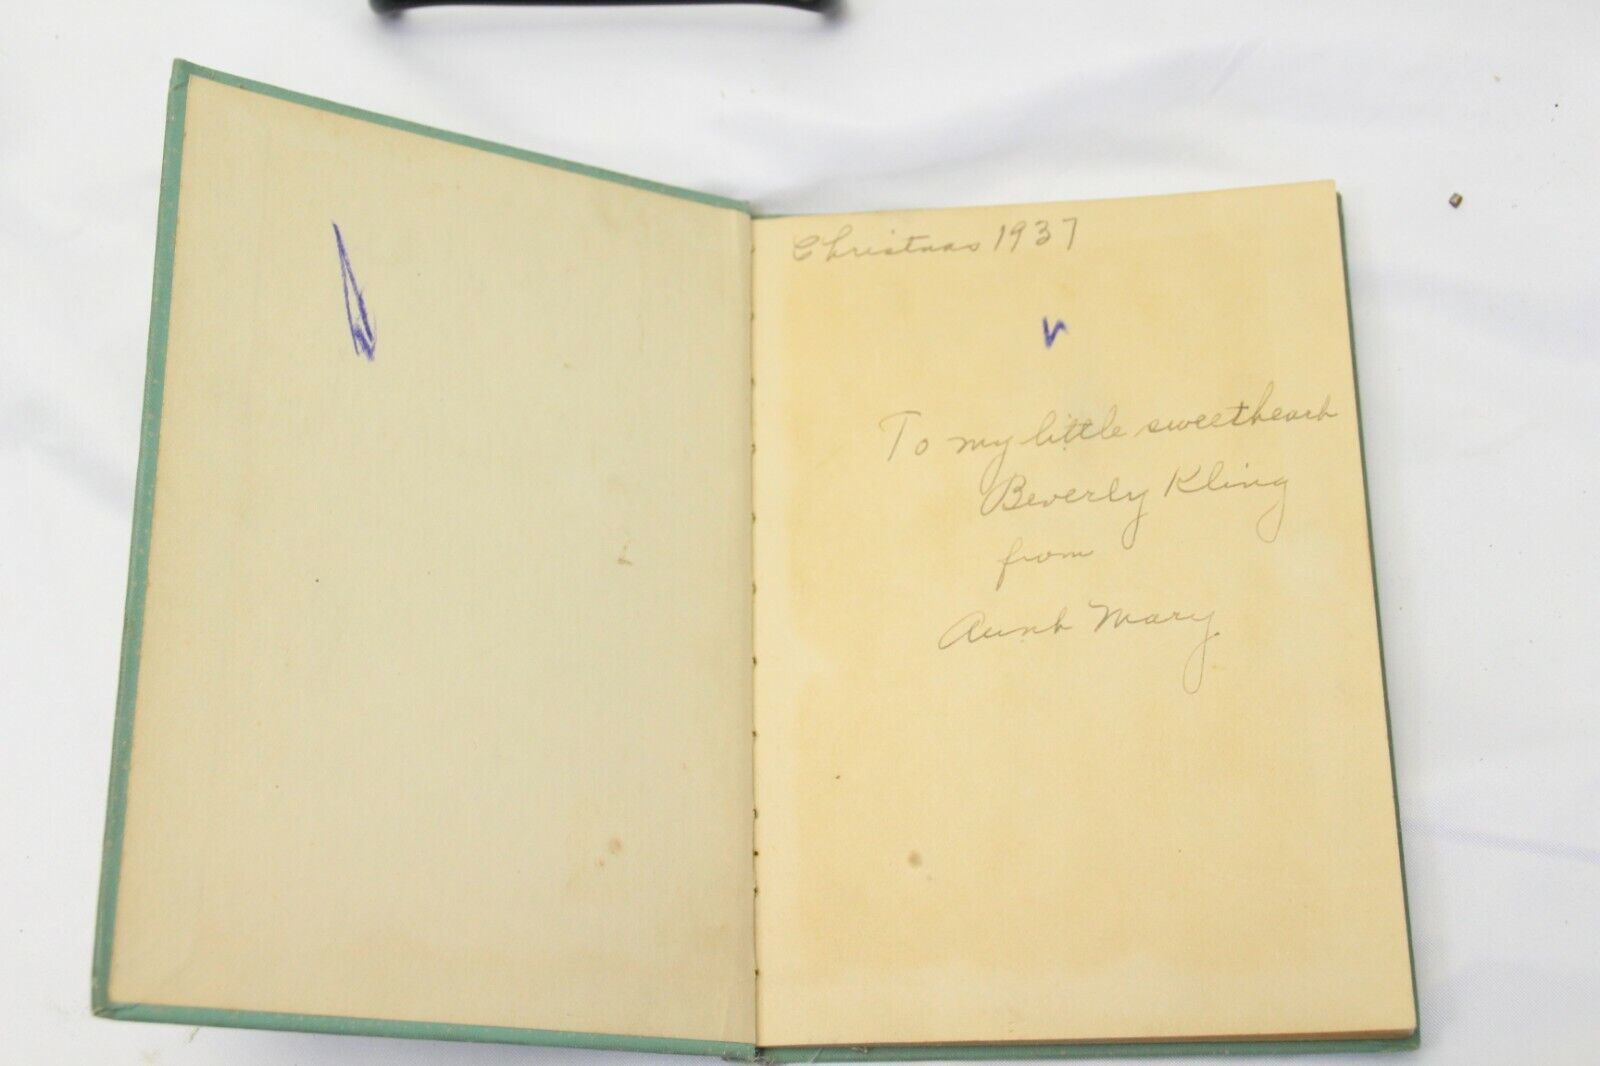 Christmas 1937
To my little sweetheart
Beverly Kling
from
Aunt Mary